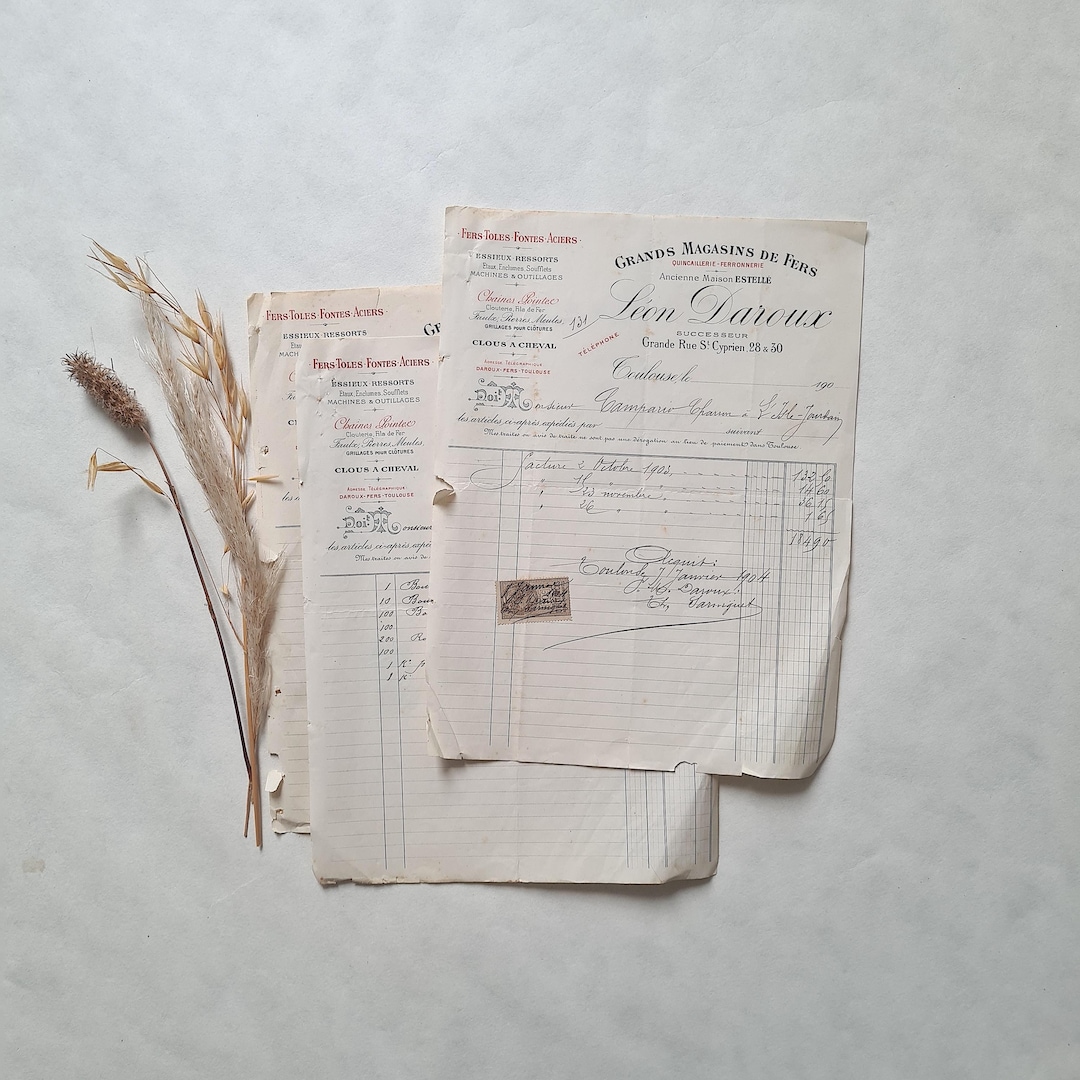 FERS·TOLES·FONTES·ACIERS
ESSIEUX·RESSORTS
Etaux, Enclumes, Soufflets
MACHINES & OUTILLAGES
Chaînes, Pointes
Clouterie, Fils de Fer
Faulx, Pierres, Meules,
GRILLAGES POUR CLÔTURES
CLOUS A CHEVAL
ADRESSE TÉLÉGRAPHIQUE
DAROUX-FERS-TOULOUSE
GRANDS MAGASINS DE FERS
QUINCAILLERIE-FERRONNERIE
Ancienne Maison ESTELLE
Léon Daroux
SUCCESSEUR
Grande Rue St Cyprien, 28 & 30
131
TÉLÉPHONE
Toulouse, le 190
Doit Monsieur à L'Isle-Jourdain
les articles ci-après expédiés par suivant
Mes traites ou avis de traite ne sont pas une dérogation au lieu de paiement dans Toulouse
Facture 2 Octobre 1903 132 50
" "
" 23 novembre "
" 26 " " 1 65
184 90
Acquit:
Toulouse 7 Janvier 1904
Daroux
FERS·TOLES·FONTES·ACIERS
ESSIEUX·RESSORTS
MACH
FERS·TOLES·FONTES·ACIERS
ESSIEUX·RESSORTS
Etaux, Enclumes, Soufflets
MACHINES & OUTILLAGES
Chaînes, Pointes
Clouterie, Fils de Fer
Faulx, Pierres, Meules,
GRILLAGES POUR CLÔTURES
CLOUS A CHEVAL
ADRESSE TÉLÉGRAPHIQUE
DAROUX-FERS-TOULOUSE
Doit Monsieur
les articles ci-après expé
Mes traites ou avis de
1 Bou
10 Bou
100 Bo
100
200 Ro
100
1 K°
1 K°